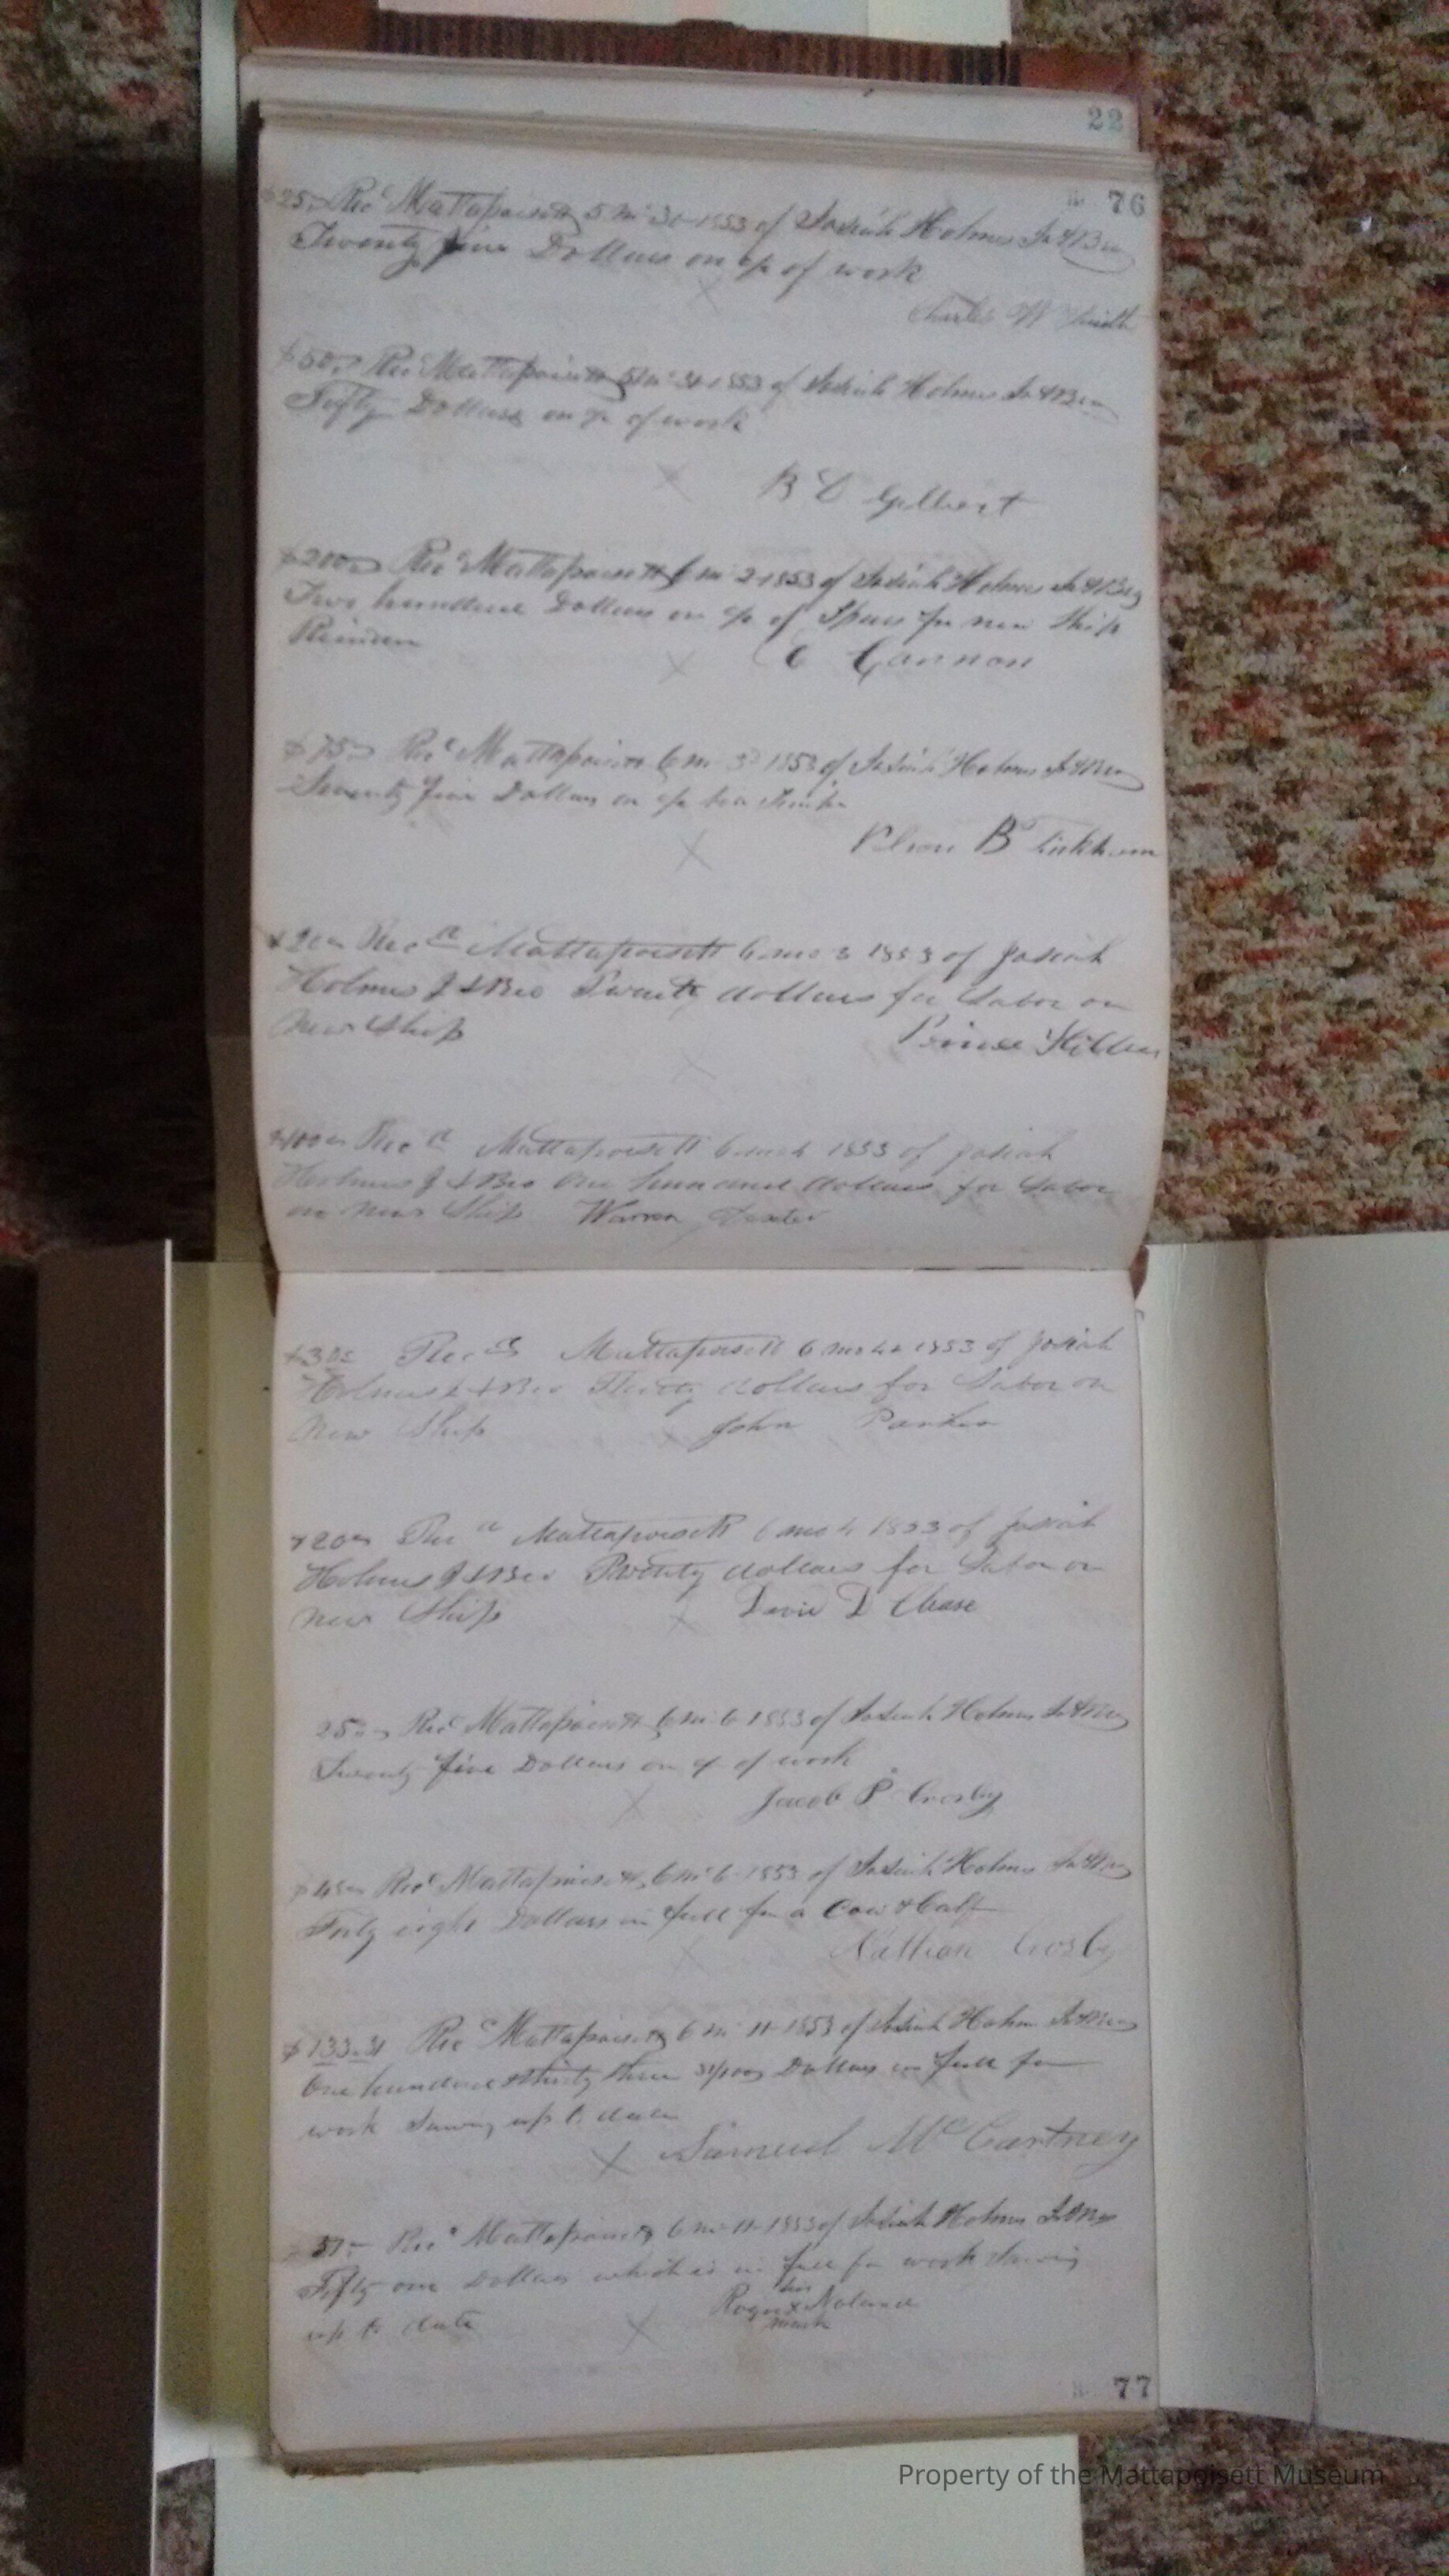 22
76
$25 Rec^d Mattapoisett 5 mo 31 1853 of Josiah Holmes Jr & Bro
Twenty five Dollars on a/c of work
Charles W Smith
$50 Rec^d Mattapoisett 5 mo 31 1853 of Josiah Holmes Jr & Bro
Fifty Dollars on a/c of work
B Gilbert
$200 Rec^d Mattapoisett 6 mo 2 1853 of Josiah Holmes Jr & Bro
Two hundred Dollars on a/c of Spars for new Ship
C Cannon
$75 Rec^d Mattapoisett 6 mo 3 1853 of Josiah Holmes Jr & Bro
Seventy five Dollars on a/c
B Tinkham
$20 Rec^d Mattapoisett 6 mo 3 1853 of Josiah
Holmes J & Bro Twenty dollars for Labor on
New Ship Prince Hiller
$100 Rec^d Mattapoisett 6 mo 4 1853 of Josiah
Holmes J & Bro One hundred dollars for Labor
on New Ship Warren Dexter
$30 Rec^d Mattapoisett 6 mo 4 1853 of Josiah
Holmes J & Bro Thirty dollars for Labor on
New Ship John Parker
$20 Rec^d Mattapoisett 6 mo 4 1853 of Josiah
Holmes J & Bro Twenty dollars for Labor on
New Ship David D Chase
25 Rec^d Mattapoisett 6 mo 6 1853 of Josiah Holmes Jr & Bro
Twenty five Dollars on a/c of work
Jacob P Crosby
$48 Rec^d Mattapoisett 6 mo 6 1853 of Josiah Holmes Jr & Bro
Forty eight Dollars in full for a Cow & Calf
Nathan Crosby
$133.31 Rec^d Mattapoisett 6 mo 11 1853 of Josiah Holmes Jr & Bro
One hundred & thirty three 31/100 Dollars in full for
work Sawing up to date
X Samuel McCartney
51 Rec^d Mattapoisett 6 mo 11 1853 of Josiah Holmes Jr & Bro
Fifty one Dollars which is in full for work Sawing
his
up to date Roger X
mark
77
Property of the Mattapoisett Museum